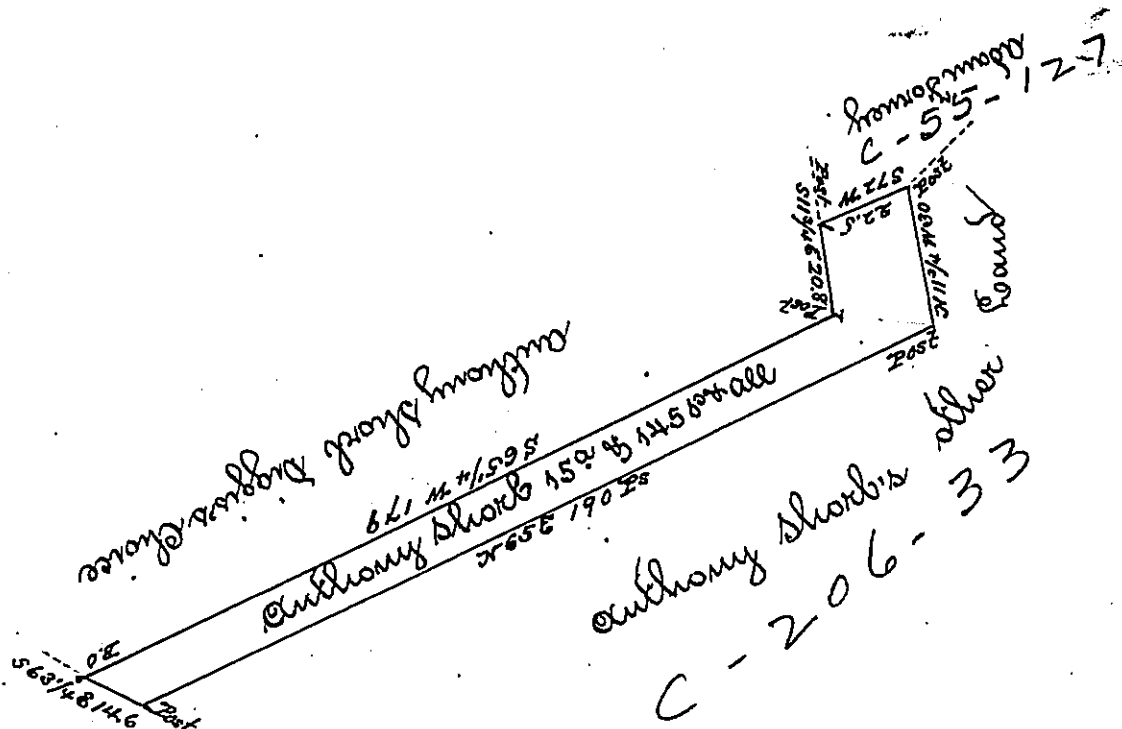 Adam Forney
C - 55 - 127
Post
S 72 W
22.5
Post
S 11 3/4 E 20.8
Post
N 11 3/4 W 30
Land
Post
Anthony Shorb Diggis's Choice
S 65 1/4 W 179
Anthony Shorb
N 65 E 190 Ps
Anthony Shorb's other
C - 206 - 33
B.O
S 63 1/4 E 14.6
Post